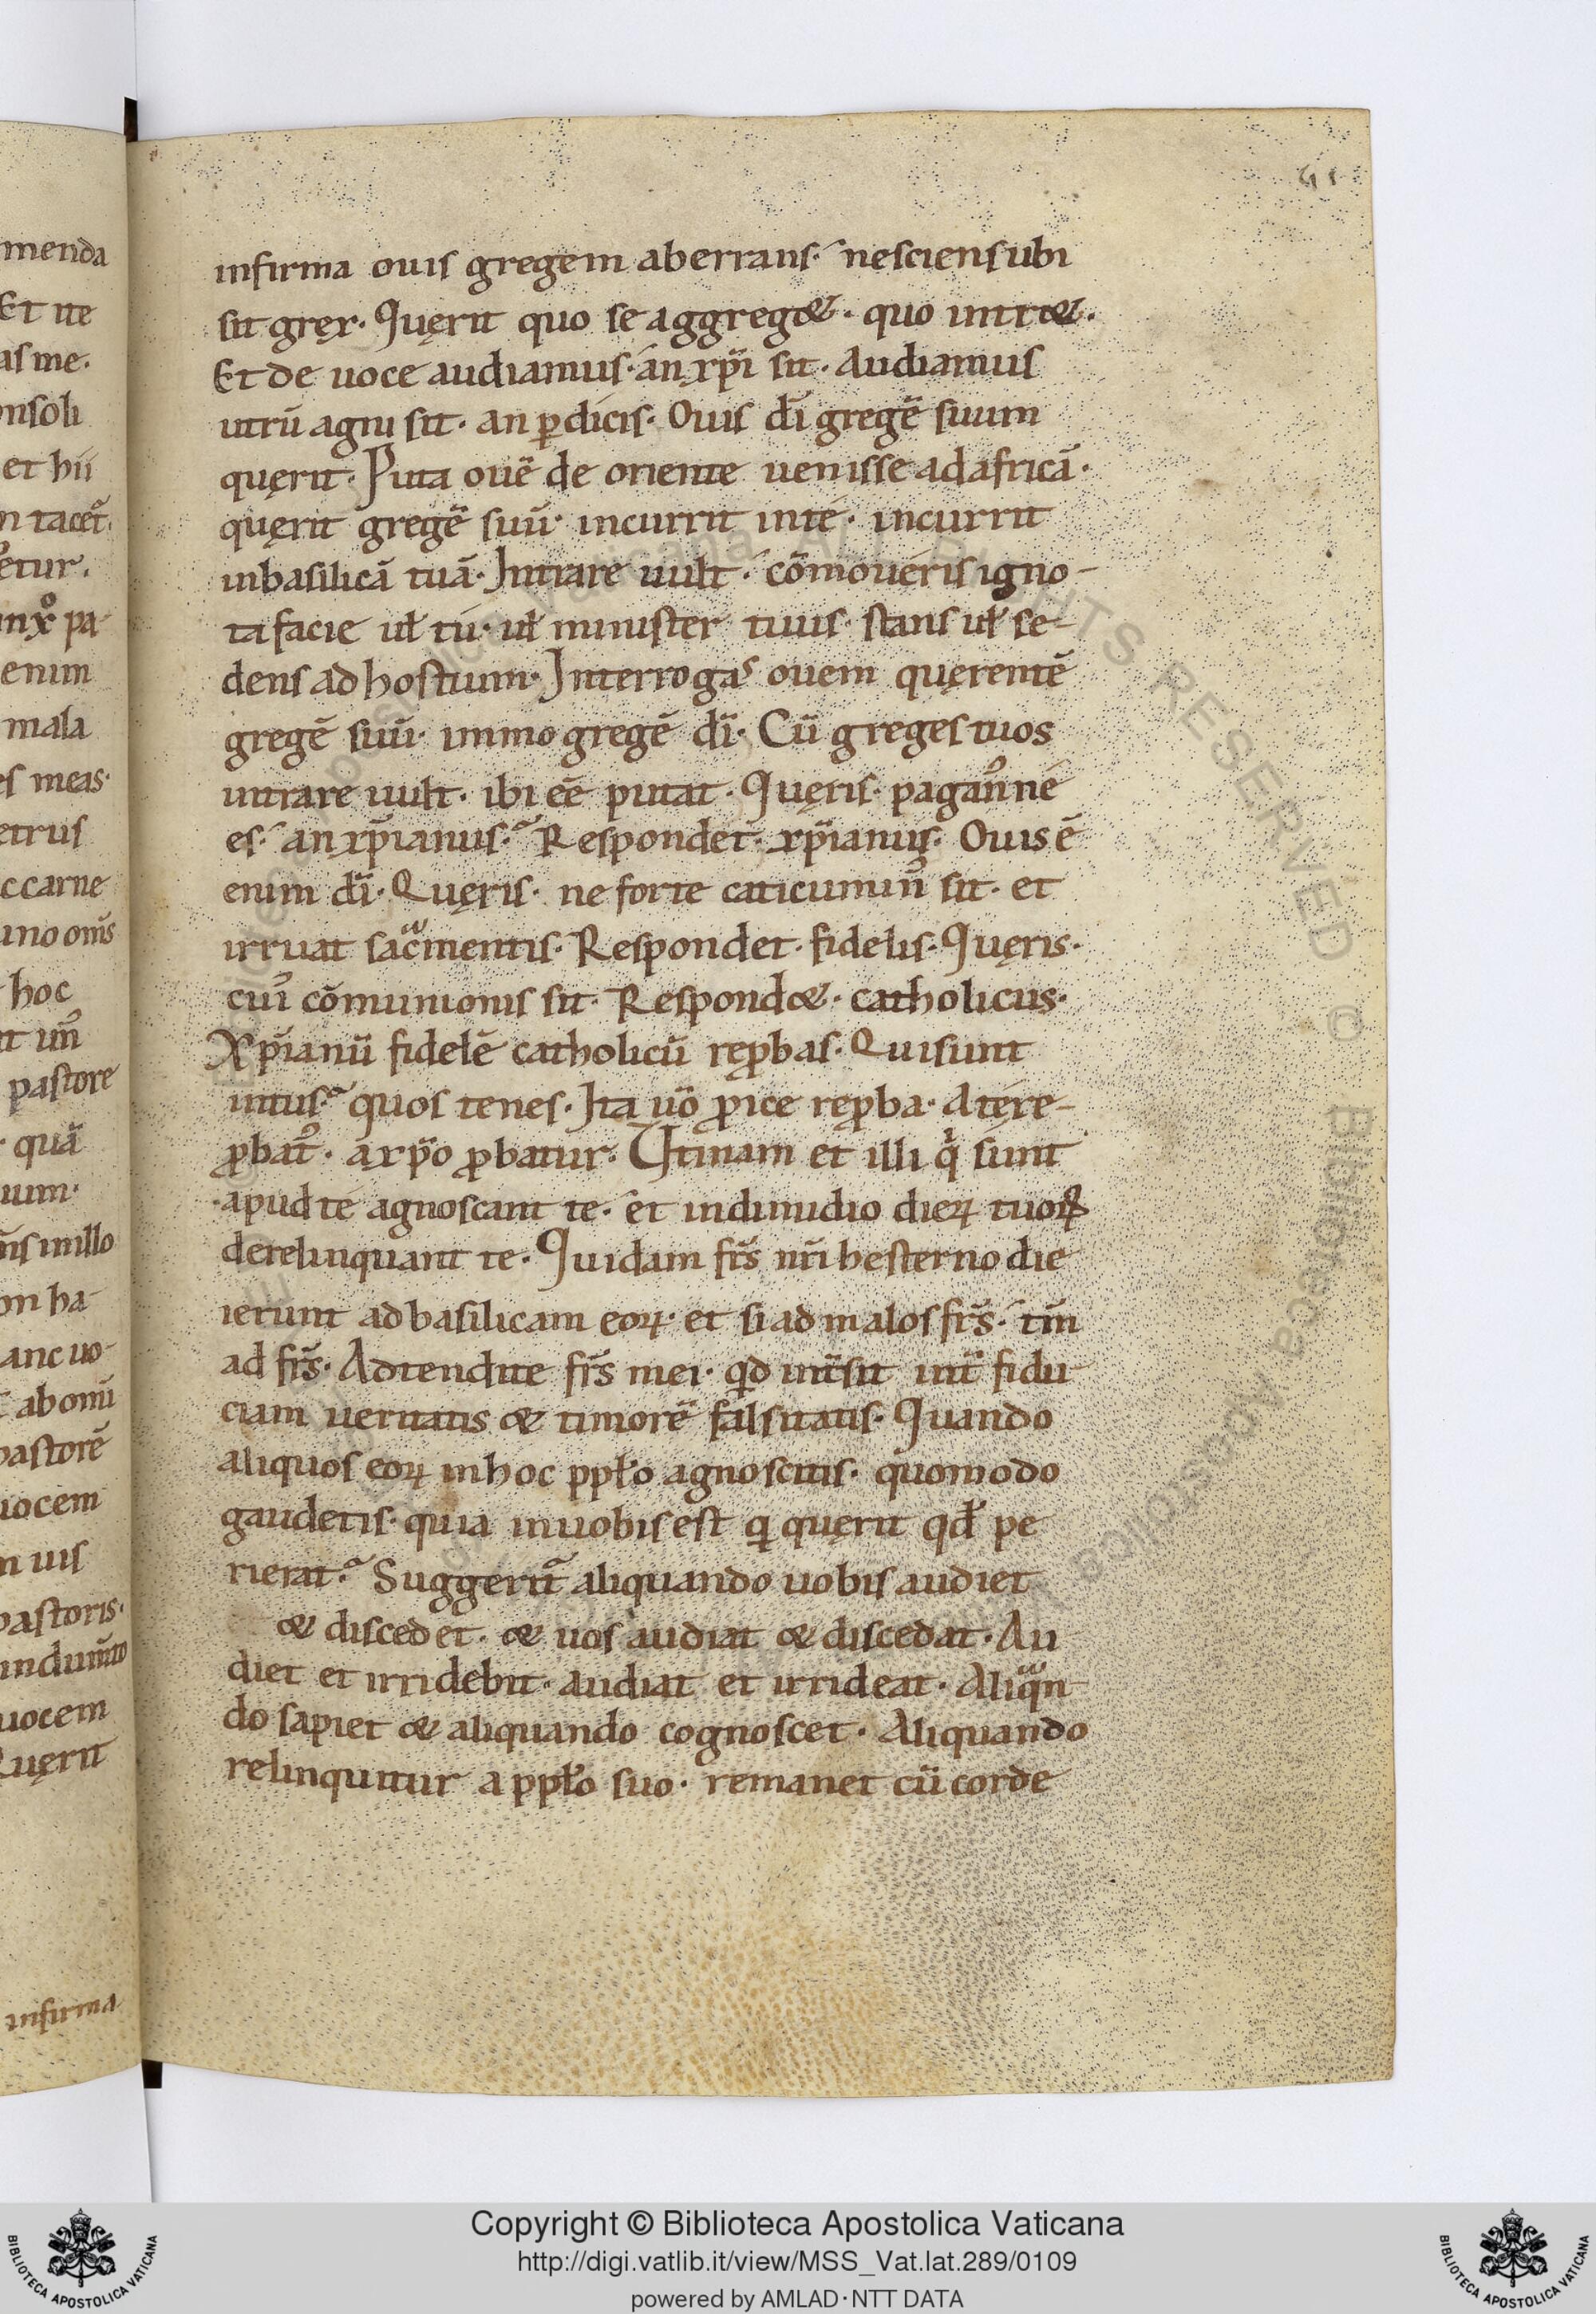 menda
Et ite
as me.
onsoli
et hii
n tacet̃.
etur.
inxp̊ pa-
enim
mala
es meas.
etrus
ccarne
uno om̃s
hoc
un̉
pastore
quã
uum.
illo
on ha-
anc uo-
abonũ
pastorẽ
uocem
n uis
pastoris.
uocem
Quęrit
infirma
41
infirma ouis gregem aberrans. nesciens ubi
sit gręx. Quęrit quo se aggreg&. quo intr&.
Et de uoce audiamus. an xp̃i sit. Audiamus
utrũ agni sit. an ꝑdicis. Ouis dĩ gregẽ suum
quęrit. Puta ouẽ de oriente uenisse ad africã.
quęrit gregẽ suũ. incurrit in te. incurrit
in basilicã tuã. Intrare uult. cõmoueris igno-
ta facie uł tu. uł minister tuus. stans uł se-
dens ad hostium. Interrogas ouem quęrentẽ
gregẽ suũ. immo gregẽ dĩ. Cũ greges tuos
intrare uult. ibi eẽ putat. Quęris. pagan̉ ne
es. an xp̃ianus. Respondet. xp̃ianus. Ouis ẽ
enim dĩ. Quęris. ne forte caticumin̉ sit. et
irruat sac̃mentis. Respondet. fidelis. Quęris.
cuỉ cõmunionis sit. Respond&. catholicus.
Xp̃ianũ fidelẽ catholicũ reꝓbas. Qui sunt
intus. quos tenes. Ita uõ ꝓice reꝓba. A te re-
ꝓbat̉. a xp̃o ꝓbatur. Utinam et illi qͥ sunt
apud te agnoscant te. et in dimidio dieꝝ tuoꝝ
derelinquant te. Quidam fr̃s nr̃i hesterno die
ierunt ad basilicam eoꝝ. et si ad malos fr̃s. tm̃
ad fr̃s. Adtendite fr̃s mei. qd int̃sit int̃ fidu
ciam ueritatis & timorẽ falsitatis. Quando
aliquos eoꝝ in hoc ppło agnoscitis. quomodo
gaudetis. quia in uobis est q quęrit qđ pe
rierat. Suggerit̃ aliquando uobis audiet
& discedet. & uos audiat & discedat. Au
diet et irridebit. audiat et irrideat. Aliqᵃn
do sapiet & aliquando cognoscet. Aliquando
relinquitur a ppło suo. remanet cũ corde
Copyright © Biblioteca Apostolica Vaticana
http://digi.vatlib.it/view/MSS_Vat.lat.289/0109
powered by AMLAD·NTT DATA
BIBLIOTECA APOSTOLICA VATICANA
BIBLIOTECA APOSTOLICA VATICANA